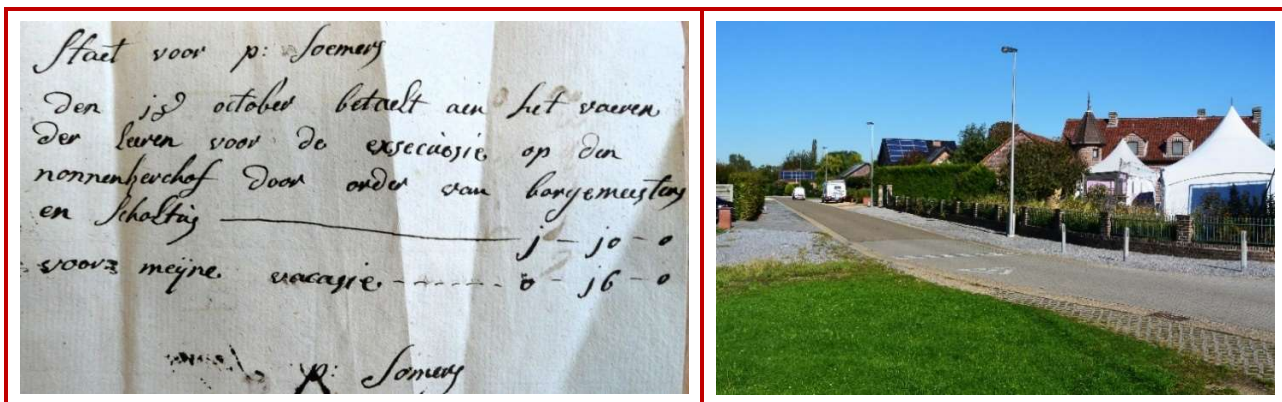 Staet voor p: Soemers
Den october betaelt aen het vaeren
der leeren voor de exsecusie op den
nonnenberchof door order van borgemeesters
en Scholtus j - jo - o
voor meijne vacasie o - j6 - o
p: Somers